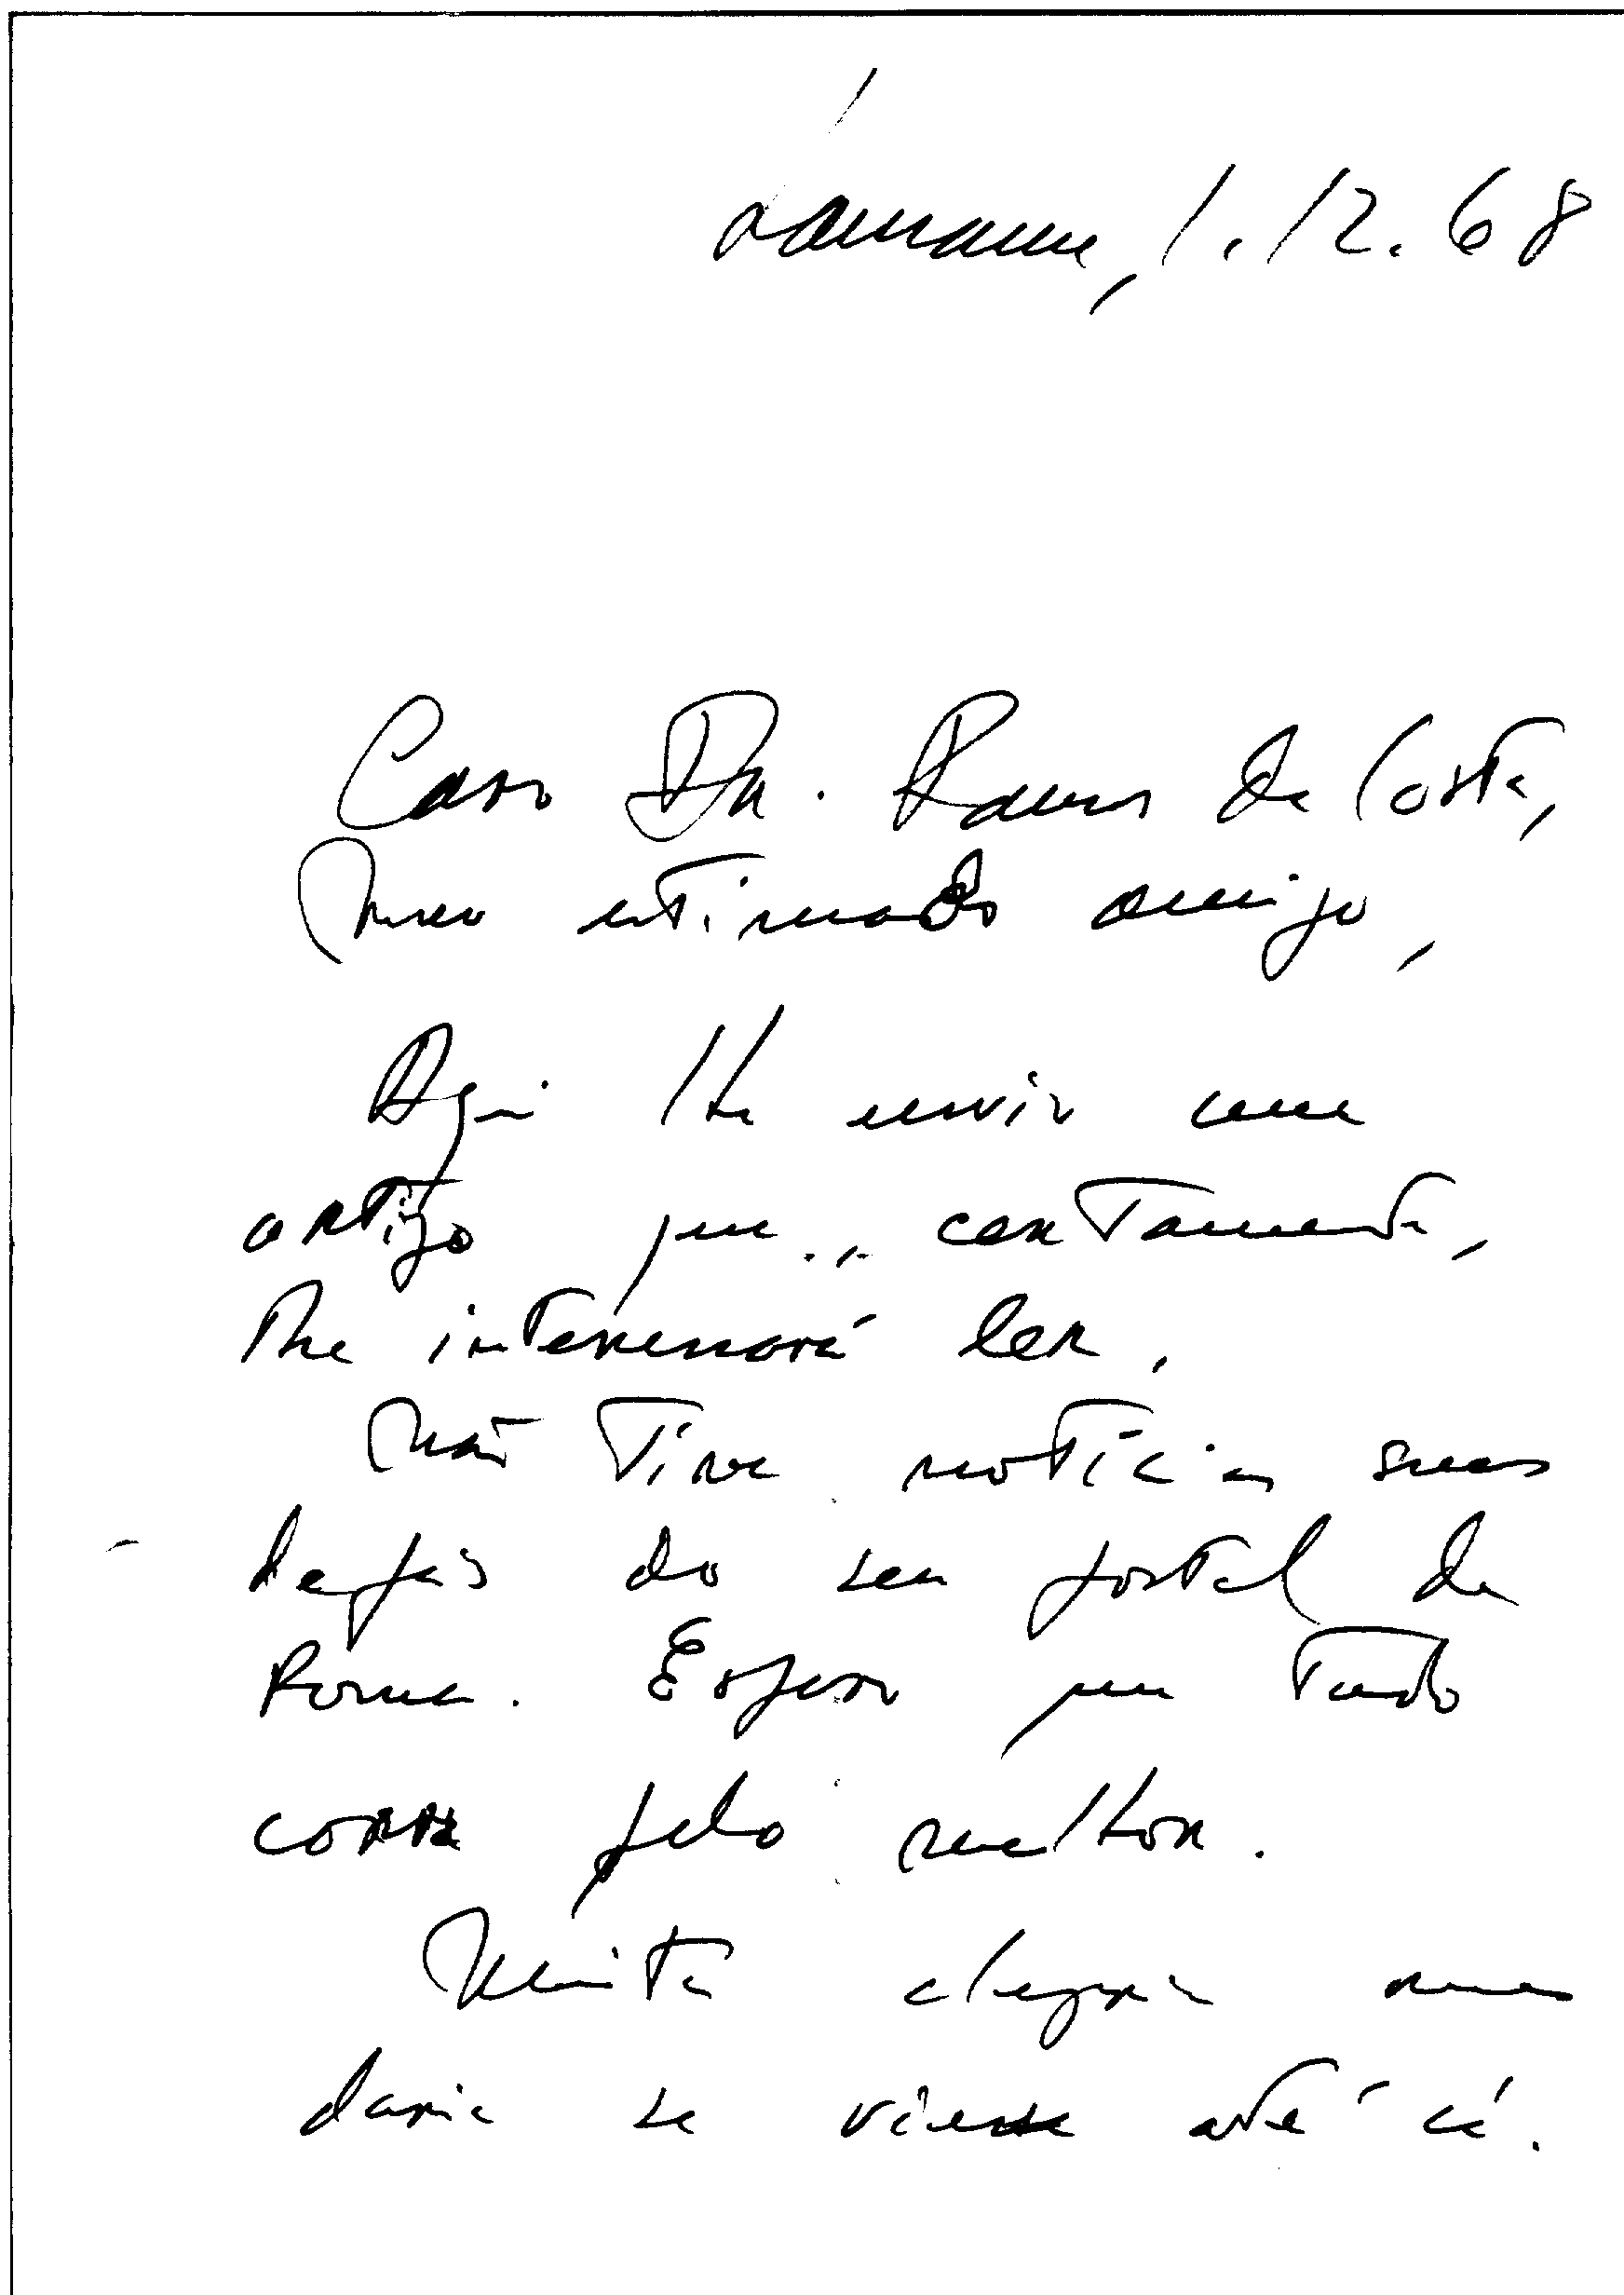 Lausanne, 1.12.68
Caro Dr. Ramos da Costa,
Meu estimado amigo,
Aqui lhe envio um
artigo que, certamente,
lhe interessará ler.
Não tive notícias suas
depois do seu postal de
Roma. Espero que tudo
corra pelo melhor.
Muita alegria me
daria se viesse até cá.